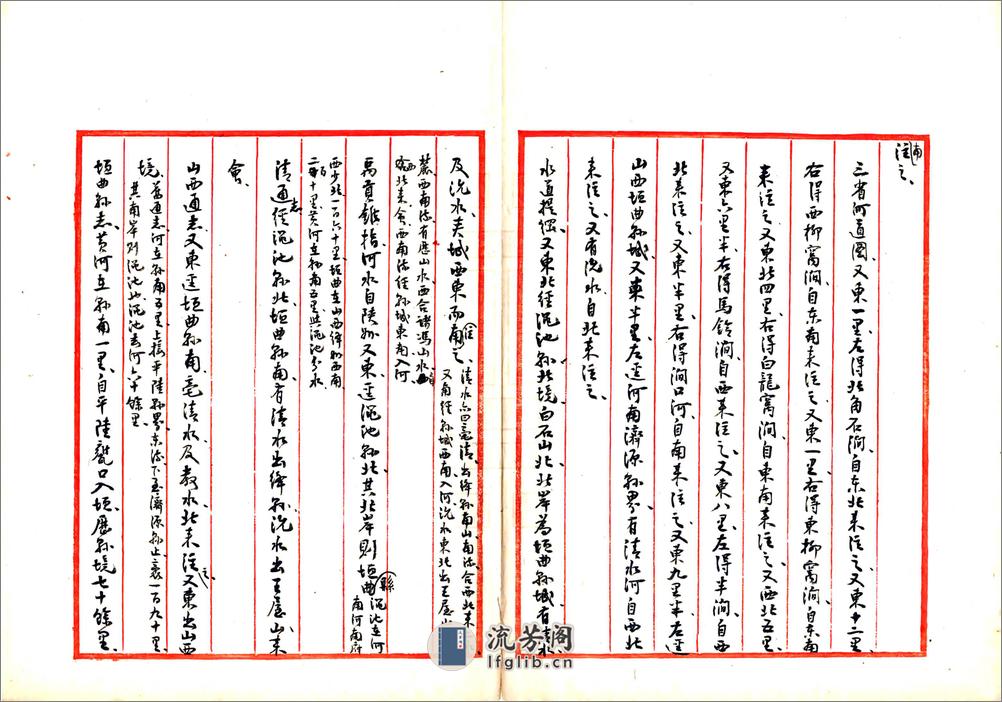 南
注之
三省河道圖又東一里左得北角石澗自东北来注之又東十二里
右得西柳窩澗自东南来注之又東一里右得東柳窩澗自东南
来注之又东北四里右得白龍窩澗自東南来注之又西北五里
又東六里半右得馬鈴澗自西来注之又東八里左得半澗自西
北来注之又東半里右得澗口河自南来注之又東九里半左逕
山西垣曲縣城又東半里左逕河南濟源縣界有清水河自西北
来注之又有沇水自北来注之
水道提綱又東北經澠池縣北境白石山北北岸為垣曲縣城有清水
及沇水夹城西東而南注之
清水亦曰亳清出绛縣南山南流合西北来
又南經縣城西南入河沇水東北出王屋山
麓西南流有歷山水西合諸馮山水
西北来会西南流經縣城東南入河
禹貢錐指河水自陕州又東逕澠池縣北其北岸則垣曲縣
澠池在河
南河南府
西少北一百六十里垣曲在山西绛州西南
二百十里黄河在縣南五里與澠池分水
清通志經澠池縣北垣曲縣南有清水出绛縣沇水出王屋山来
會
山西通志又東逕垣曲縣南亳清水及教水北来注之又東出山西
境
舊通志河在縣南五里上接平陸縣界东流下至濟源縣止袤一百九十里
其南岸則澠池也澠池去河六十餘里
垣曲縣志黄河在縣南一里自平陸㼽口入垣歷縣境七十餘里
流芳阁
lfglib.cn